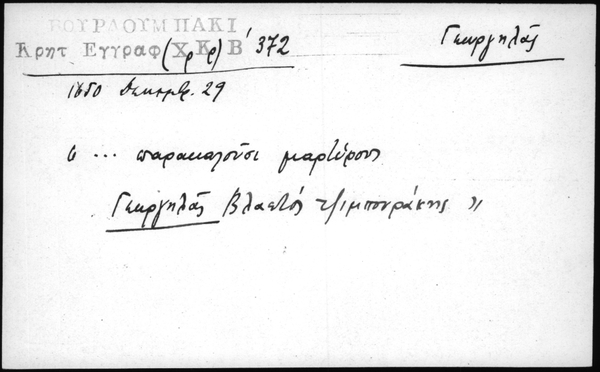 ΒΟΥΡΔΟΥΜΠΑΚΙ
Κρητ Εγγραφ (Χ Κ Β΄ 372
(ρρ)
Γεωργηλᾶς
1650 Δεκεμβρ. 29
" ... παρακαλοῦσι μαρτύρους
Γεωργηλᾶς Βλαστός τζιμπουράκης "